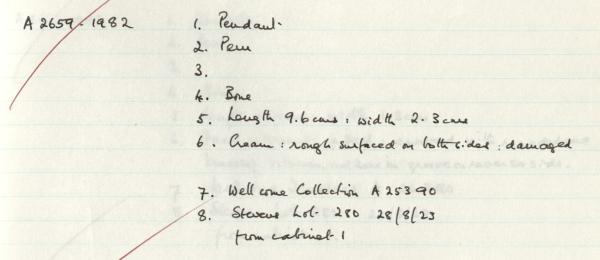 A 2659-1982 1. Pendant
2. Peru
3.
4. Bone
5. Length 9.6cms : width 2.3cms
6. Cream : rough surfaced on both sides : damaged
7. Wellcome Collection A 25390
8. Stevens Lot 280 28/8/23
from cabinet 1